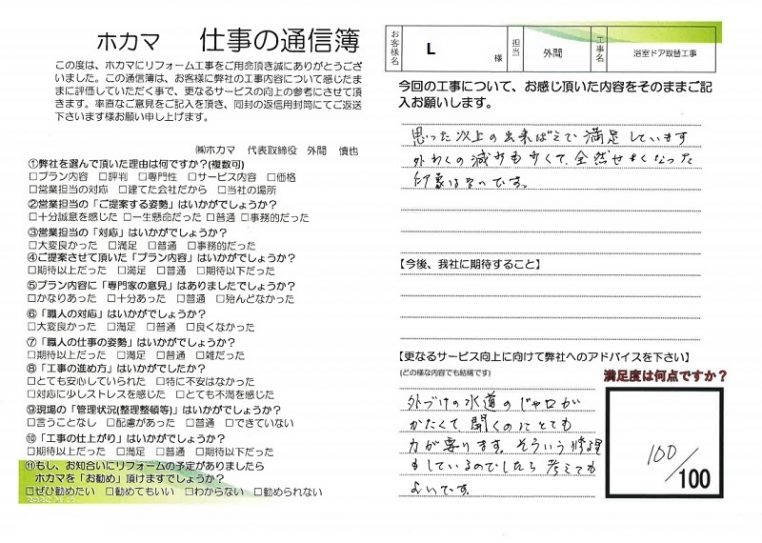 ホカマ 仕事の通信簿
この度は、ホカマにリフォーム工事をご用命頂き誠にありがとうござ
いました。この通信簿は、お客様に弊社の工事内容について感じたま
まに評価していただく事で、更なるサービスの向上の参考にさせて頂
きます。率直なご意見をご記入を頂き、同封の返信用封筒にてご返送
下さいます様お願い申し上げます。
㈱ホカマ 代表取締役 外間 慎也
①弊社を選んで頂いた理由は何ですか?(複数可)
□プラン内容 □評判 □専門性 □サービス内容 □価格
□営業担当の対応 □建てた会社だから □当社の場所
②営業担当の「ご提案する姿勢」はいかがでしょうか?
□十分誠意を感じた □一生懸命だった □普通 □事務的だった
③営業担当の「対応」はいかがでしょうか?
□大変良かった □満足 □普通 □事務的だった
④ご提案させて頂いた「プラン内容」はいかがでしょうか?
□期待以上だった □満足 □普通 □期待以下だった
⑤プラン内容に「専門家の意見」はありましたでしょうか?
□かなりあった □十分あった □普通 □殆んどなかった
⑥「職人の対応」はいかがでしょうか?
□大変良かった □満足 □普通 □良くなかった
⑦「職人の仕事の姿勢」はいかがでしょうか?
□期待以上だった □満足 □普通 □雑だった
⑧「工事の進め方」はいかがでしたか?
□とても安心していられた □特に不安はなかった
□対応に少しストレスを感じた □とても不満を感じた
⑨現場の「管理状況(整理整頓等)」はいかがでしょうか?
□言うことなし □配慮があった □普通 □できていない
⑩「工事の仕上がり」はいかがでしょうか?
□期待以上だった □満足 □普通 □期待以下だった
⑪もし、お知合いにリフォームの予定がありましたら
ホカマを「お勧め」頂けますでしょうか?
□ぜひ勧めたい □勧めてもいい □わからない □勧められない
お客様名 L 様 担当 外間 工事名 浴室ドア取替工事
今回の工事について、お感じ頂いた内容をそのままご記
入お願いします。
思った以上の出来ばえで満足しています
外わくの減りも少くて、全然せまくなった
印象はないです。
【今後、我社に期待すること】
【更なるサービス向上に向けて弊社へのアドバイスを下さい】
(どの様な内容でも結構です)
満足度は何点ですか?
外づけの水道のじゃ口が
かたくて、開くのにとても
力が要ります。そういう修理
もしているのでしたら考えても
よいです。
100
/100